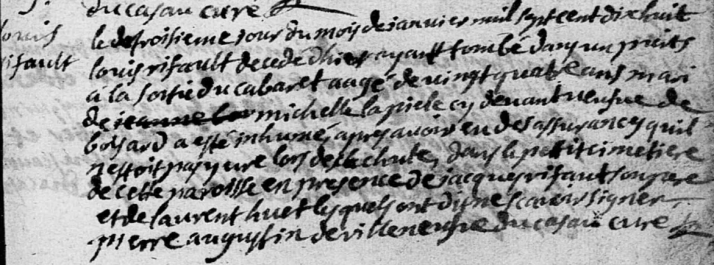 du casau curé
Louis
rifault
le troisieme jour du mois de janvier mil sept cent dixhuit
louis rifault decedé d'hier ayant tombé dans un puits
a la sortie du cabaret aagé de vingt quatre ans mari
de jeanne la michelle la piele cy devant veufve de
boisard a esté inhumé, apres avoir eu des assurances qu'il
n'estoit pas yvre lors de la chute, dans le petit cimetiere
de cette paroisse en presence de jacques rifault son pere
et de laurent huet lesquels ont dit ne scavoir signer
pierre augustin de villeneufve du casau curé